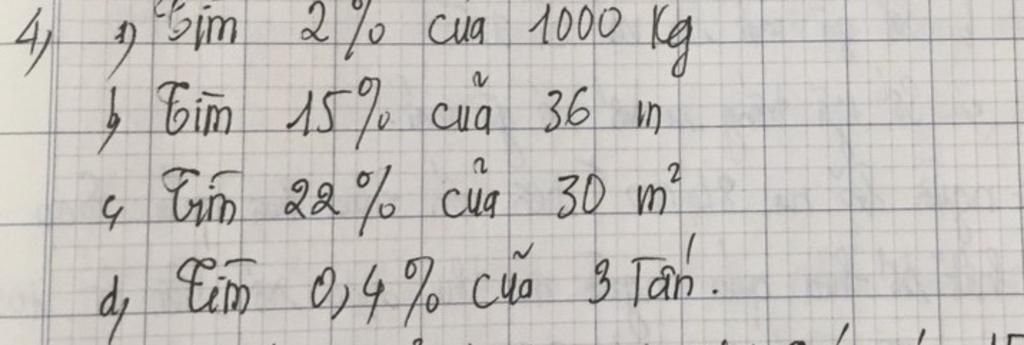 4) a) Tìm 2% của 1000 kg
b) Tìm 15% cuã 36 m
c) Tìm 22% của 30 m²
d) Tìm 0,4% cuã 3 Tấn.